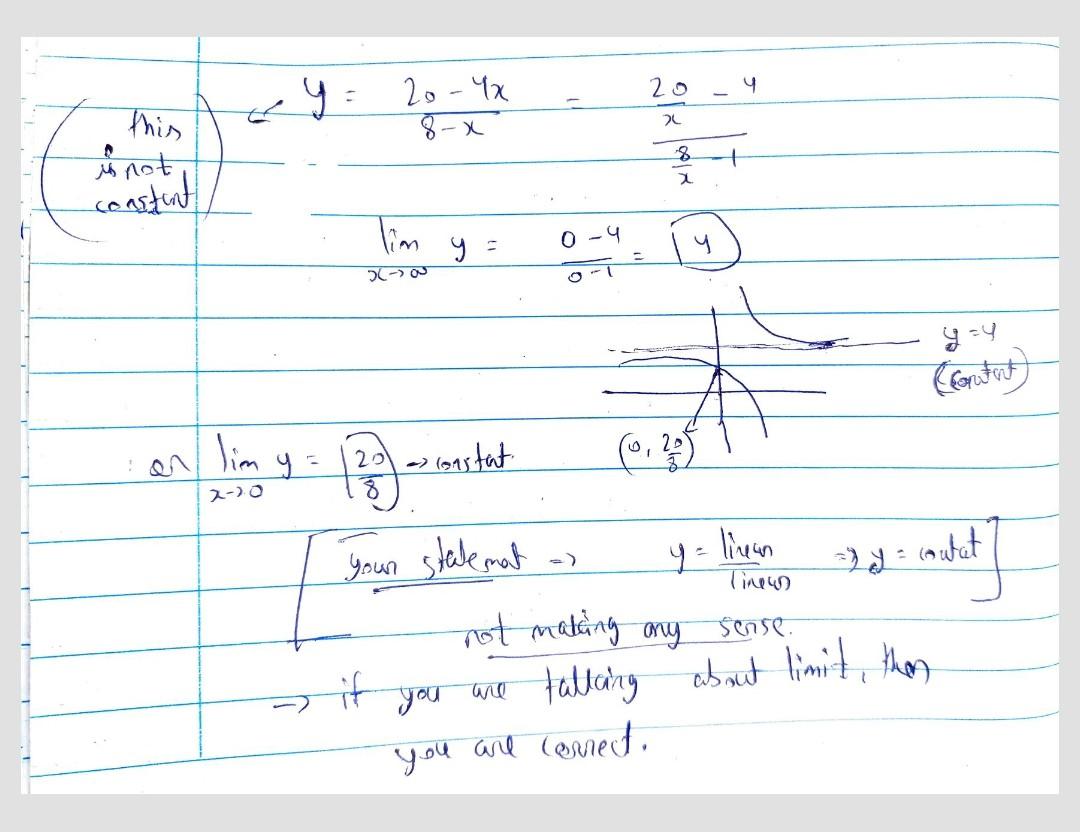 y = (20 - 4x)/(8 - x) = (20/x - 4)/(8/x - 1)
this
is not
constant
lim x→∞ y = (0 - 4)/(0 - 1) = 4
y = 4
(constant)
(0, 20/8)
or lim x→0 y = 20/8 → constat
your statemat => y = linear/linear => y = contat
not making any sense.
→ if you are talking about limit, then
you are correct.